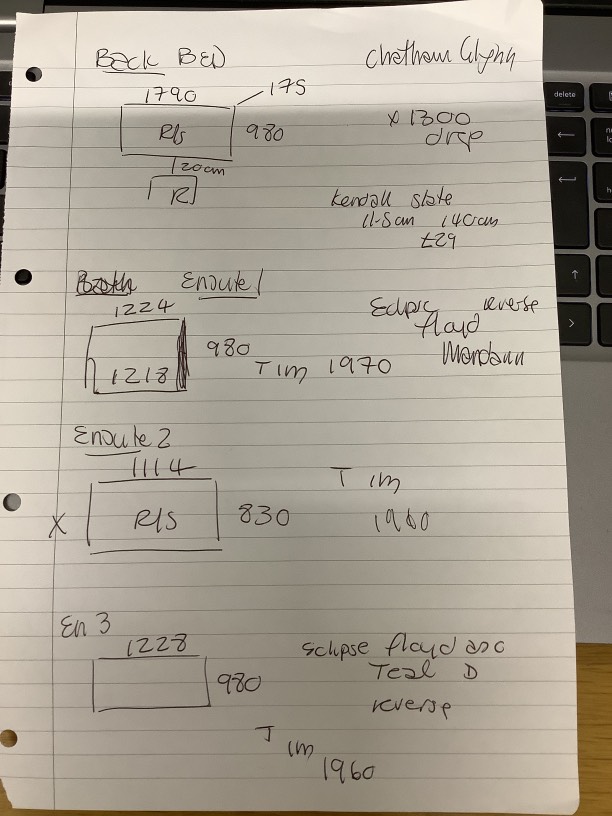 Back BED
Chatham Glynn
1790
175
R/s
980
x 1300
drop
20cm
R
Kendall slate
11-5am 140cm
£29
Ensuite 1
1224
980
1218
TIM 1970
Eclipse reverse
floyd
Ensuite 2
1114
X
R/S
830
TIM
1960
En 3
1228
980
Eclipse floyd
Teal D
reverse
TIM
1960
delete